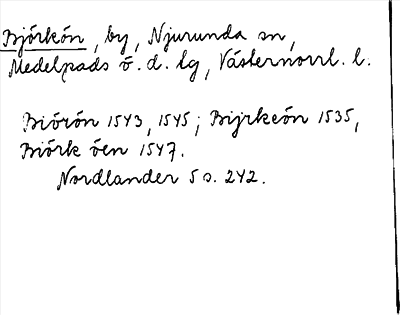 Björkön, by, Njurunda sn,
Medelpads ö. d. lg, Västernorrl. l.
Biörön 1543, 1545; Bijrkeön 1535,
Biörk öen 1547.
Nordlander 5 s. 242.